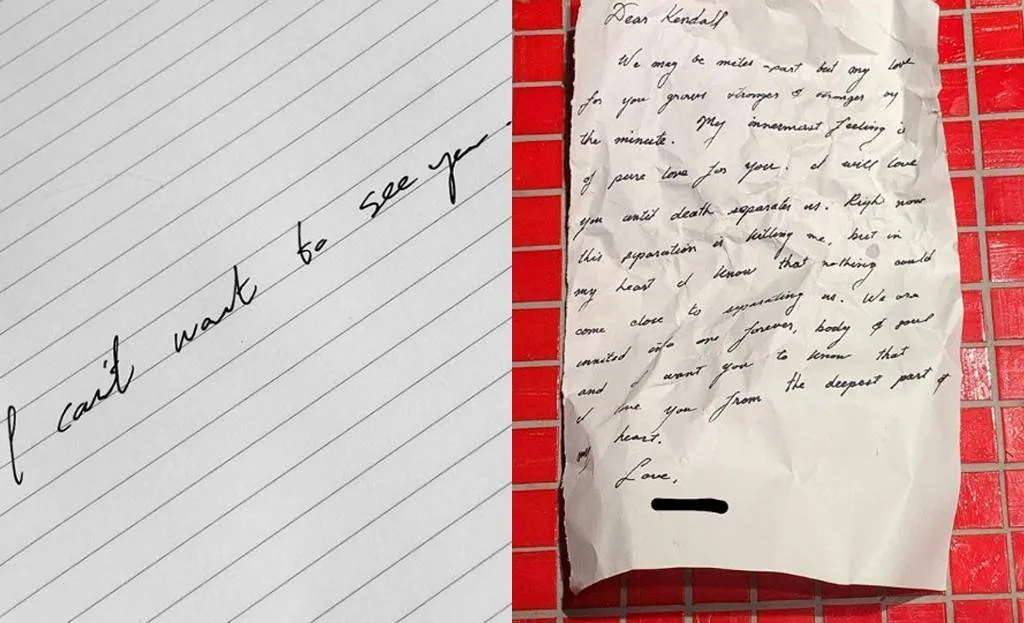 I can't wait to see you.
Dear Kendall
We may be miles -part but my love
for you grows stronger & stronger by
the minute. My innermost feeling is
of pure love for you. I will love
you until death separates us. Right now
this separation is killing me, but in
my heart I know that nothing could
come close to separating us. We are
united into one forever, body & soul
and I want you to know that
I love you from the deepest part of
my heart.
Love,